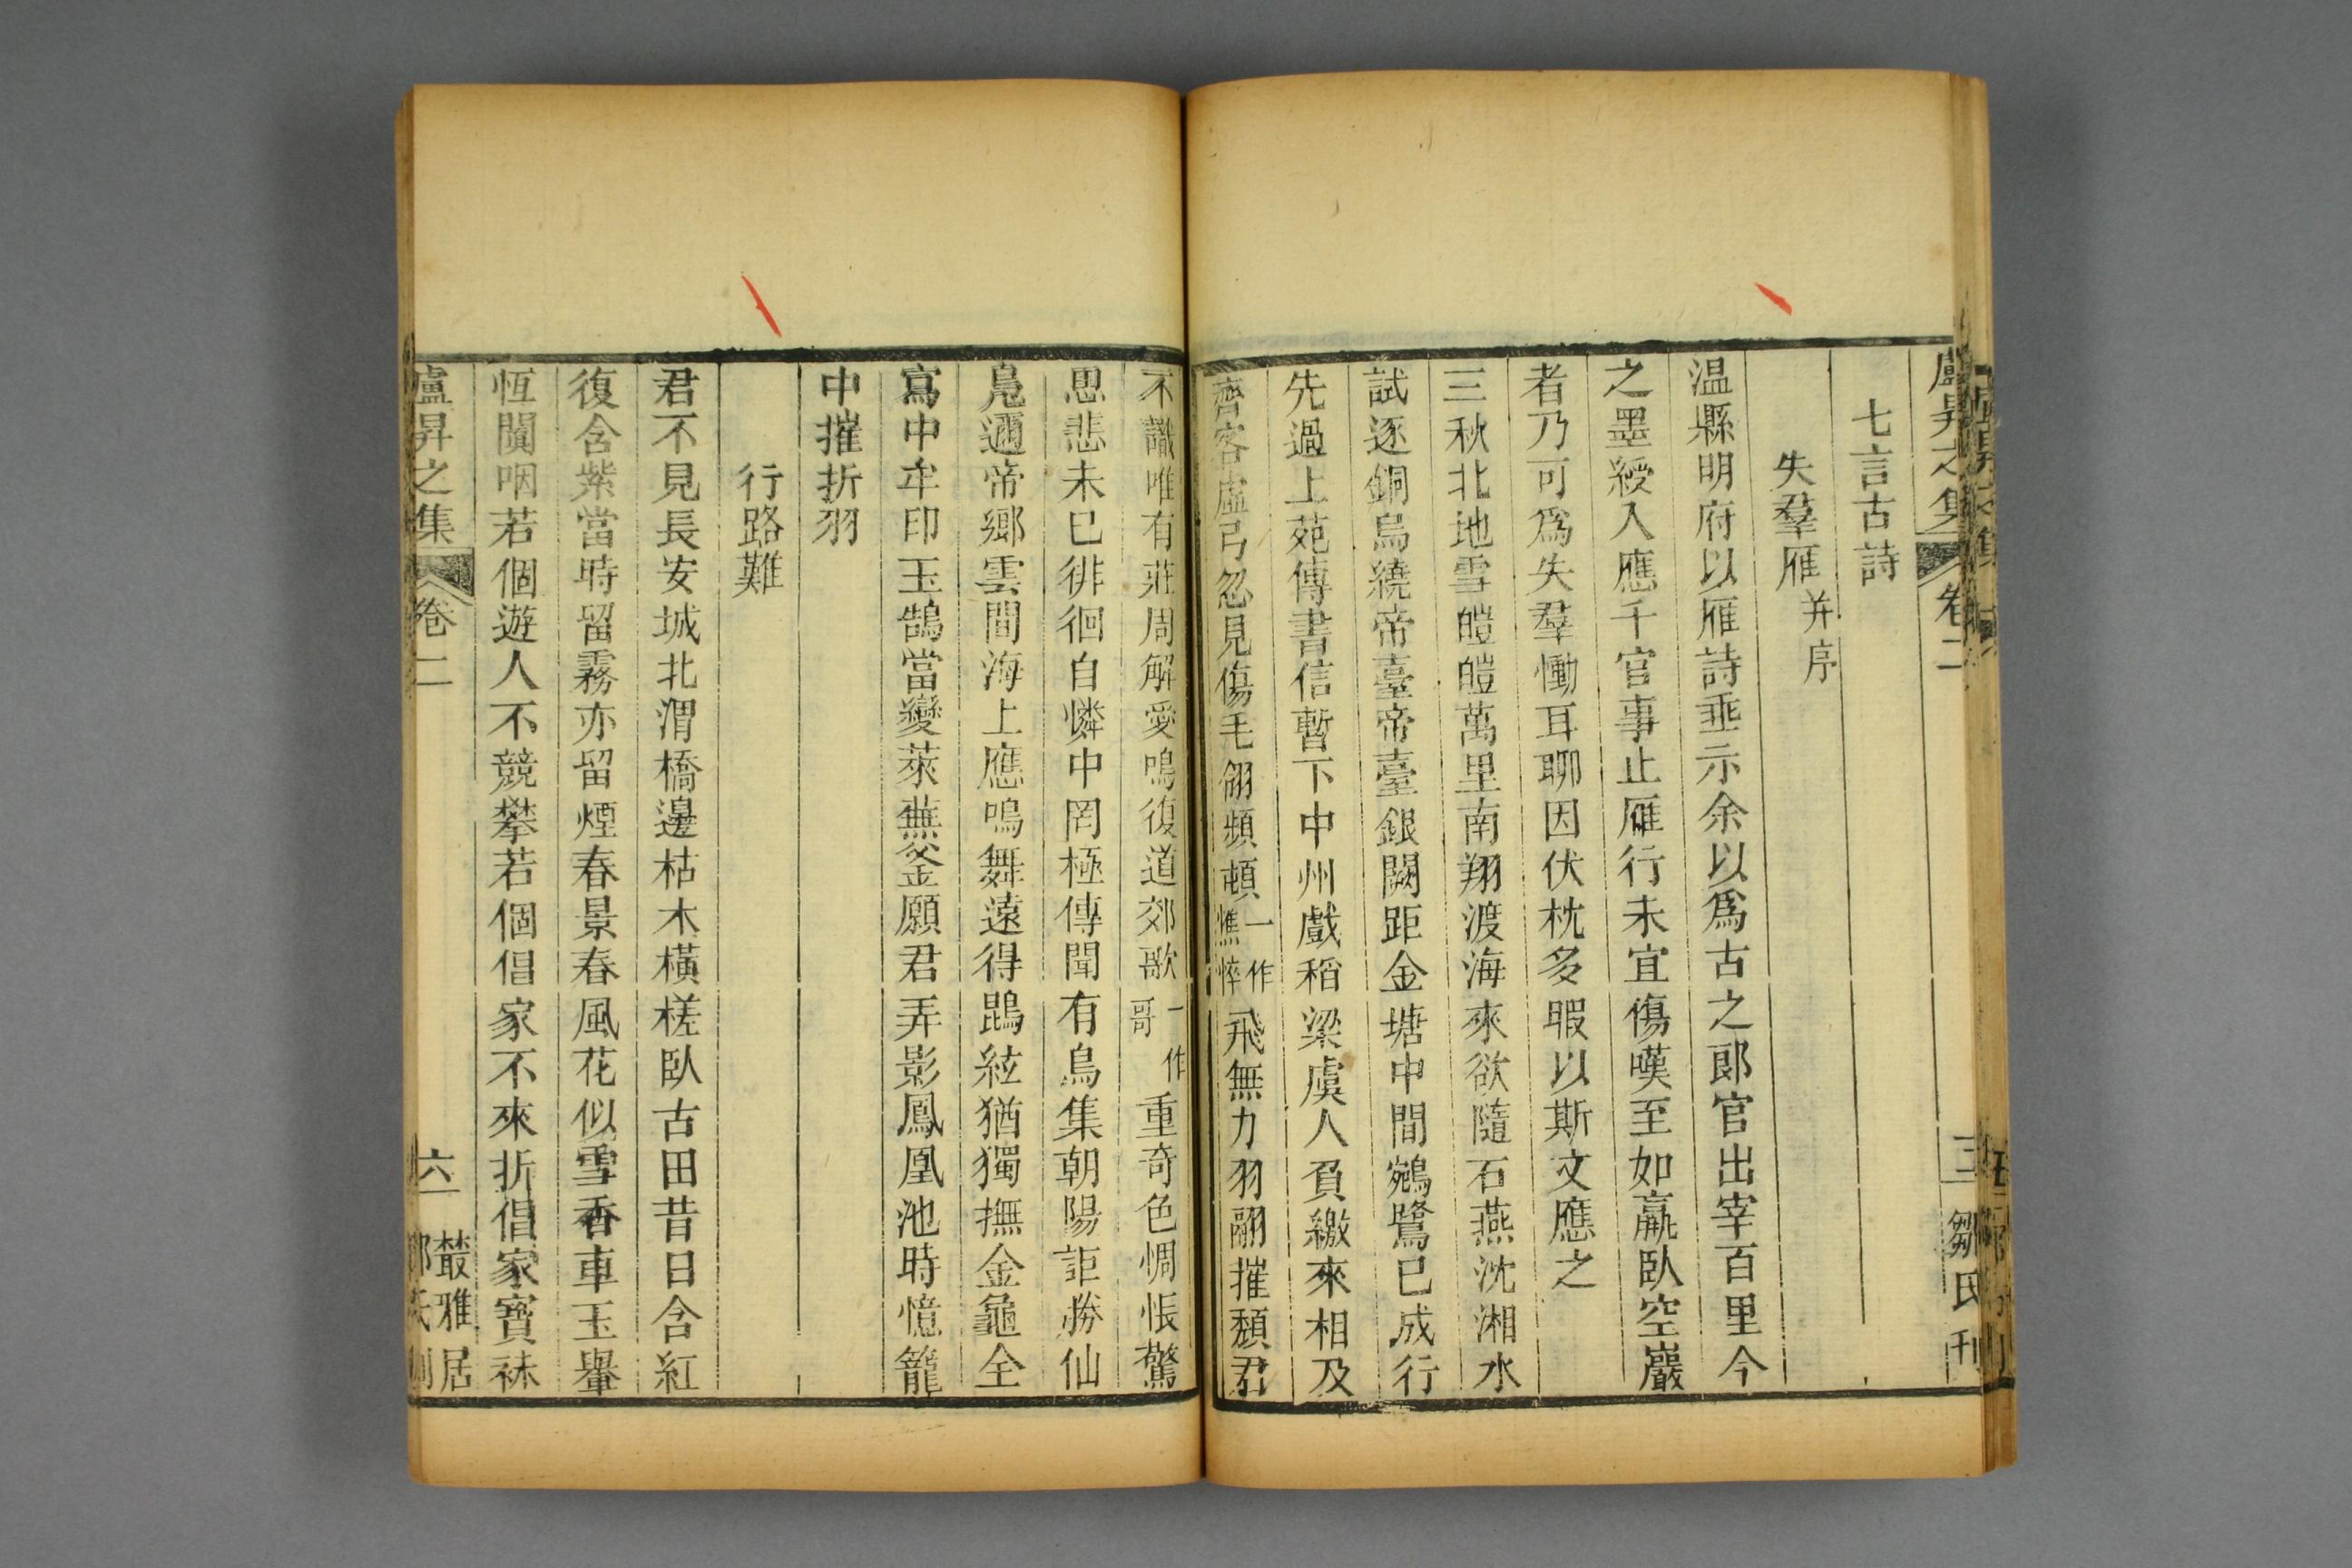 七言古詩
失羣雁并序
温縣明府以雁詩垂示余以爲古之郎官出宰百里今
之墨綬入應千官事止雁行未宜傷嘆至如羸臥空巖
者乃可爲失羣慟耳聊因伏枕多暇以斯文應之
三秋北地雪皚皚萬里南翔渡海來欲隨石燕沈湘水
試逐銅烏繞帝臺帝臺銀闕距金塘中間鵷鷺已成行
先過上苑傳書信暫下中州戲稻粱虞人負繳來相及
齊客虛弓忽見傷毛翎頻頓一作憔悴飛無力羽翮摧頹君
不識唯有莊周解愛鳴復道郊歌一作哥重奇色惆悵驚
思悲未已徘徊自憐中罔極傳聞有鳥集朝陽詎勝仙
鳧邇帝鄉雲間海上應鳴舞遠得鵾絃猶獨撫金龜全
寫中牟印玉鵠當變萊蕪釜願君弄影鳳凰池時憶籠
中摧折羽
行路難
君不見長安城北渭橋邊枯木橫槎臥古田昔日含紅
復含紫當時留霧亦留煙春景春風花似雪香車玉轝
恆闐咽若個遊人不競攀若個倡家不來折倡家寶袜
盧昇之集 卷二 六 叢雅居
盧昇之集 卷二 鄒氏刊